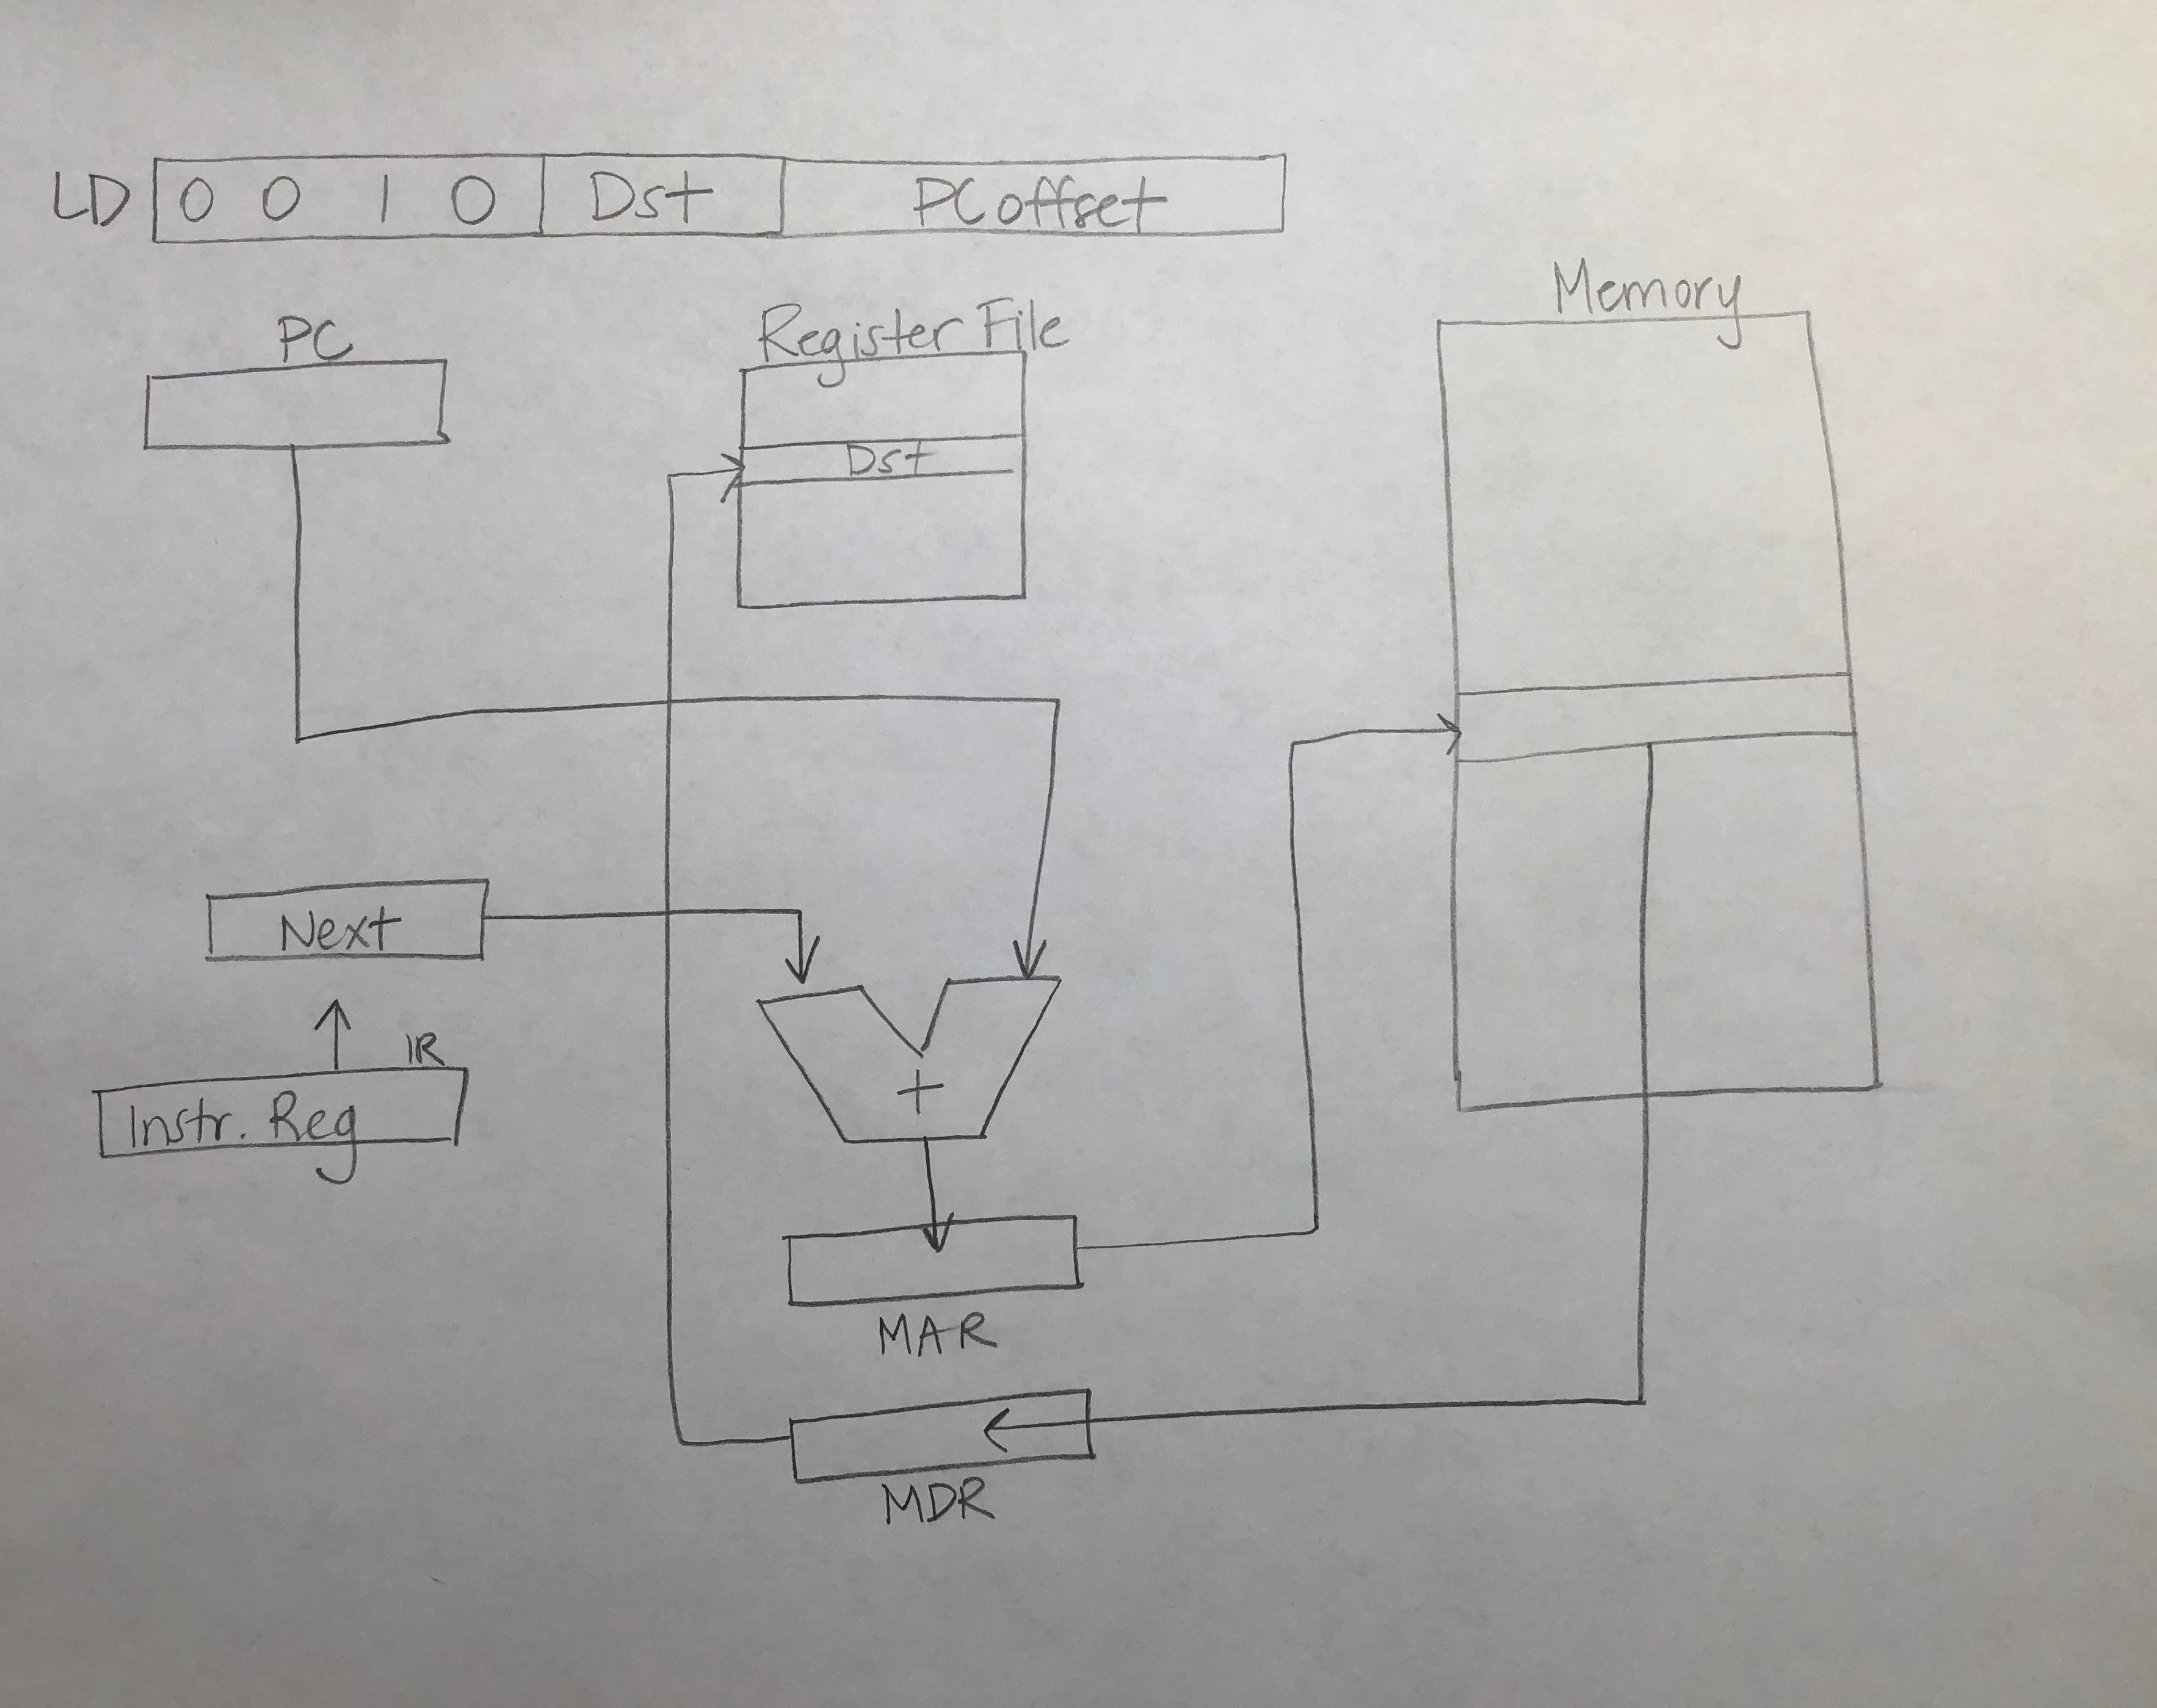 LD 0 0 1 0 Dst PCoffset
Memory
PC
Register File
Dst
Next
IR
Instr. Reg
+
MAR
MDR